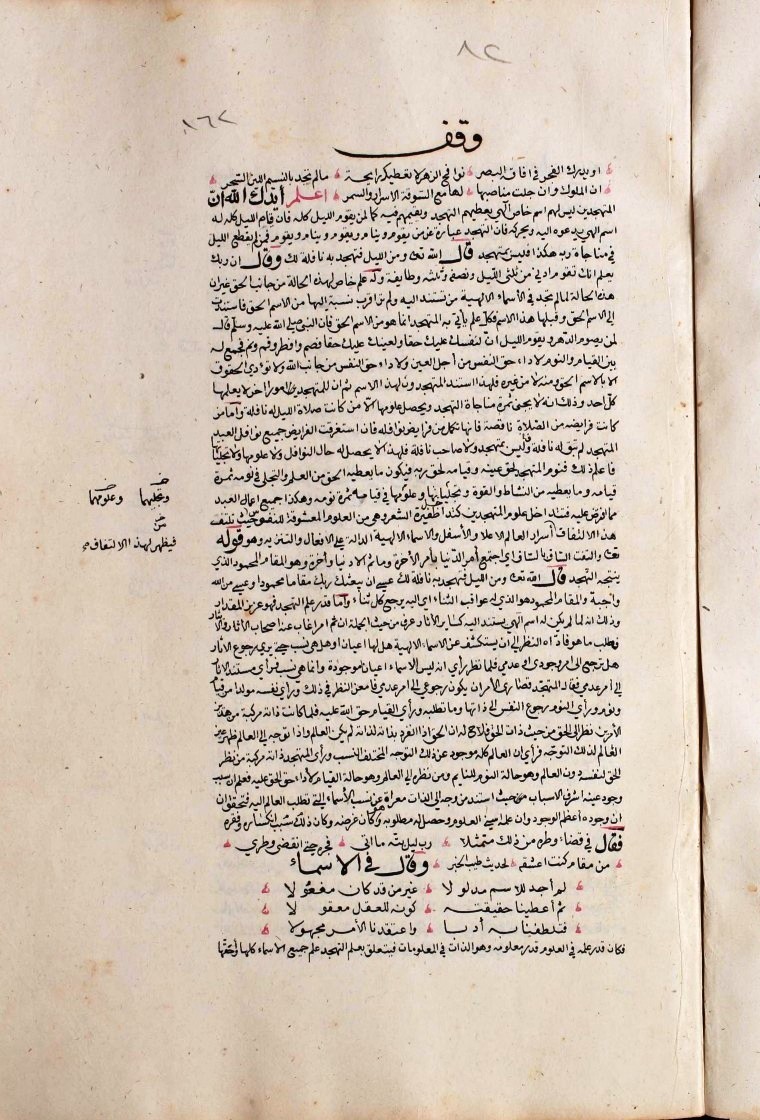 ٨٢
١٦٢
وقف
او يدرك الفجر في افاق البصر نوافح الزهر لا تعطيك رايحة ما لم تجد بالنسيم اللين السحر
ان الملوك وان جلت مناصبها لها مع السوقة الاسرار والسمر اعلم أيدك الله ان
المتهجدين ليس لهم اسم خاص الهي يعطيهم التهجد ويقيمهم فيه كما لمن يقوم الليل كله فان قايم الليل كله له
اسم الهي يدعوه اليه ويحركه فان التهجد عبارة عن من يقوم وينام ويقوم وينام ويقوم فمن لم يقطع الليل
في مناجاة ربه هكذا فليس بمتهجد قال الله تعالى ومن الليل فتهجد به نافلة لك وقال ان ربك
يعلم انك تقوم ادنى من ثلثي الليل ونصفه وثلثه وطايفة وله علم خاص لهذه الحالة من جانب الحق غير ان
هذه الحالة لما لم تجد في الأسماء الالهية من تستند اليه ولم تر اقرب نسبة إليها من الاسم الحق فاستندت
إلى الاسم الحق وقبلها هذا الاسم فكل علم يأتي به المتهجد انما هو من الاسم الحق فان النبي صلى الله عليه وسلم قال
لمن يصوم الدهر ويقوم الليل ان لنفسك عليك حقا ولعينك عليك حقا فصم وافطر وقم ونم فجمع له
بين القيام والنوم لاداء حق النفس من أجل العين ولاداء حق النفس من جانب الله ولا تؤدي الحقوق
الا بالاسم الحق ومنه لا من غيره فلهذا استند المتهجدون لهذا الاسم ثم ان للمتهجد امرا اخر لا يعلمه
كل احد وذلك انه لا يجني ثمرة مناجاة التهجد ويحصل علومها الا من كانت صلاة الليل له نافلة وأما من
كانت فرايضه من الصلاة ناقصة فانها تكمل من فرايض نوافله فان استغرقت الفرايض جميع نوافل العبد
المتهجد لم تبق له نافلة وليس بمتهجد ولا صاحب نافلة فلهذا لا يحصل له حال النوافل ولا علومها ولا تجلياتها
فاعلم ذلك فنوم المتهجد لحق عينه وقيامه لحق ربه فيكون ما يعطيه الحق من العلم والتجلي في نومه ثمرة
قيامه وما يعطيه من النشاط والقوة وتجلياتها وعلومها في قيامه ثمرة نومه وهكذا جميع اعمال العبد
مما افترض عليه فتداخل علوم المتهجدين كتداخل ضفيرة الشعر وهي من العلوم المعشوقة للنفوس حيث تلتفت
هذا الالتفاف أسرار العالم الاعلى والأسفل والاسماء الالهية الدالة على الافعال والتنزيه وهو قوله
تعالى والتفت الساق بالساق اي اجتمع أمر الدنيا بأمر الآخرة وما ثم الا دنيا وآخرة وهو المقام المحمود الذي
ينتجه التهجد قال الله تعالى ومن الليل فتهجد به نافلة لك عسى ان يبعثك ربك مقاما محمودا وعسى من الله
واجبة والمقام المحمود هو الذي له عواقب الثناء اي اليه يرجع كل ثناء وأما قدر علم التهجد فهو عزيز المقدار
وذلك انه لما لم يكن له اسم الهي يستند اليه كساير الآثار عرف من حيث الجملة ان ثم امرا غاب عنه اصحاب الآثار والآثار
فطلب ما هو فأداه النظر إلى ان يستكشف عن الاسماء الالهية هل لها اعيان او هل هي نسب حتى يرى رجوع الآثار
هل ترجع الى امر وجودي او عدمي فلما نظر رأى انه ليس للاسماء اعيان موجودة وانما هي نسب فرأى مستند الآثار
إلى أمر عدمي فقال المتهجد قصارى الأمر ان يكون رجوعي الى امر عدمي فأمعن النظر في ذلك ورأى نفسه مولدا من قيام
ونوم ورأى النوم رجوع النفس الى ذاتها وما تطلبه ورأى القيام حق الله عليه فلما كانت ذاته مركبة من هذين
الأمرين نظر إلى الحق من حيث ذات الحق فلاح له ان الحق اذا انفرد بذاته لذاته لم يكن العالم واذا توجه الى العالم ظهر عين
العالم لذلك التوجه فرأى ان العالم كله موجود عن ذلك التوجه المختلف النسب ورأى المتهجد ذاته مركبة من نظر
الحق لنفسه دون العالم وهو حالة النوم للنايم ومن نظره الى العالم وهو حالة القيام لاداء حق الحق عليه فعلم ان سبب
وجود عينه اشرف الاسباب من حيث استند من وجه الى الذات معراة عن نسب الأسماء التي تطلب العالم اليه فتحقق ان
ان وجوده أعظم الوجود وان علمه اسنى العلوم وحصل له مطلوبه وهو كان غرضه وكان ذلك سبب انكساره وفقره
فقال في قضاء وطره من ذلك متمثلا رب ليل بته ما اتى فجره حتى انقضى وطري
من مقام كنت اعشقه لحديث طيب الخبر وقال في الاسماء
لم أجد للاسم مدلولا غير من قد كان مفعولا
ثم أعطينا حقيقته كونه للعقل معقولا
فتلطفنا به أدبا واعتقدنا الأمر مجهولا
فكان قدر علمه في العلوم قدر معلومه وهو الذات في المعلومات فيتعلق بعلم التهجد علم جميع الاسماء كلها وأحقها
وتجليها وعلومها
فيظهر لهذا الالتفاف